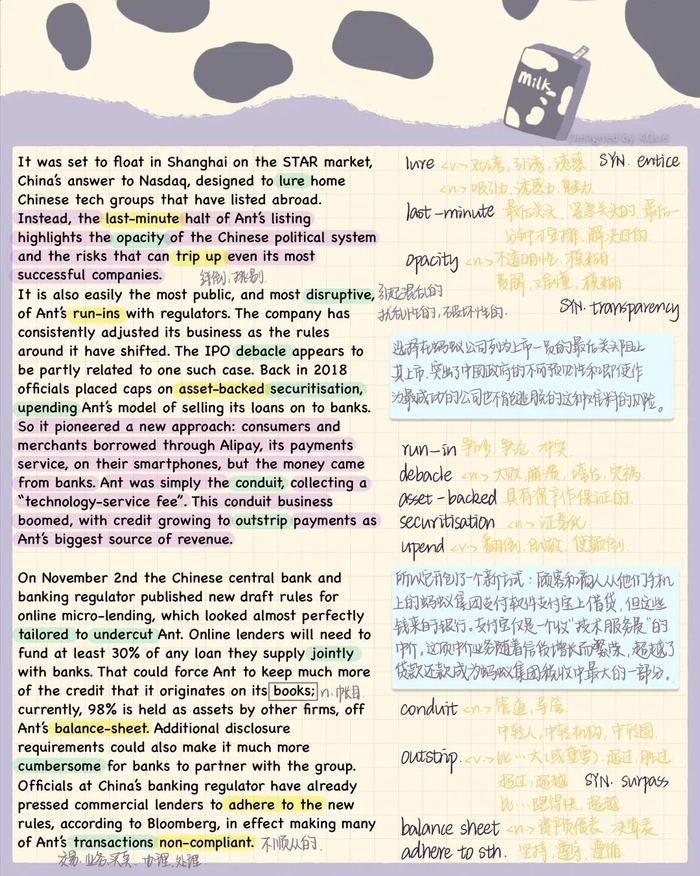 milk
Designed by
It was set to float in Shanghai on the STAR market,
China's answer to Nasdaq, designed to lure home
Chinese tech groups that have listed abroad.
Instead, the last-minute halt of Ant's listing
highlights the opacity of the Chinese political system
and the risks that can trip up even its most
successful companies.
绊倒,
It is also easily the most public, and most disruptive,
of Ant's run-ins with regulators. The company has
consistently adjusted its business as the rules
around it have shifted. The IPO debacle appears to
be partly related to one such case. Back in 2018
officials placed caps on asset-backed securitisation,
upending Ant's model of selling its loans on to banks.
So it pioneered a new approach: consumers and
merchants borrowed through Alipay, its payments
service, on their smartphones, but the money came
from banks. Ant was simply the conduit, collecting a
“technology-service fee”. This conduit business
boomed, with credit growing to outstrip payments as
Ant's biggest source of revenue.
On November 2nd the Chinese central bank and
banking regulator published new draft rules for
online micro-lending, which looked almost perfectly
tailored to undercut Ant. Online lenders will need to
fund at least 30% of any loan they supply jointly
with banks. That could force Ant to keep much more
of the credit that it originates on its books; n.帐目
currently, 98% is held as assets by other firms, off
Ant's balance-sheet. Additional disclosure
requirements could also make it much more
cumbersome for banks to partner with the group.
Officials at China's banking regulator have already
pressed commercial lenders to adhere to the new
rules, according to Bloomberg, in effect making many
of Ant's transactions non-compliant. 不顺从的.
交易,业务,买卖. 办理,处理
lure <v.> 劝诱, 引诱, 诱惑 SYN. entice
<n.> 吸引力, 诱惑力, 魅力
last-minute 最后关头, 紧急关头的, 最后一
分钟
opacity <n.> 不透明性, 模糊
费解, 难懂, 模糊
引起混乱的
扰乱性的, 破坏性的. SYN. transparency
选择在蚂蚁公司列为上市一员的最后关头阻止
其上市, 突出了中国政府的不可预见性和即使作
为最成功的公司也不能逃脱的这种绊料的风险。
run-in 争吵, 争论, 冲突
debacle <n.> 大败, 崩溃, 垮台, 灾祸
asset-backed 具有资产作保证的.
securitisation <n.> 证券化
upend <v.> 翻倒, 倒放, 使颠倒
所以它开创了一个新方式: 顾客和商人从他们手机
上的蚂蚁集团支付软件支付宝上借贷, 但这些
钱来自银行。支付宝仅是一个收“技术服务费”的
中介。这项中介业务随着信贷增长而繁荣, 超越了
贷款还款成为蚂蚁集团税收中最大的一部分。
conduit <n.> 管道, 导管
中转人, 中转机构, 中转国
outstrip <v.> 比…大(或重要), 超过, 胜过
超过, 超越 SYN. surpass
比…跑得快, 超越
balance sheet <n.> 资产负债表, 决算表
adhere to sth. 坚持, 遵守, 遵循